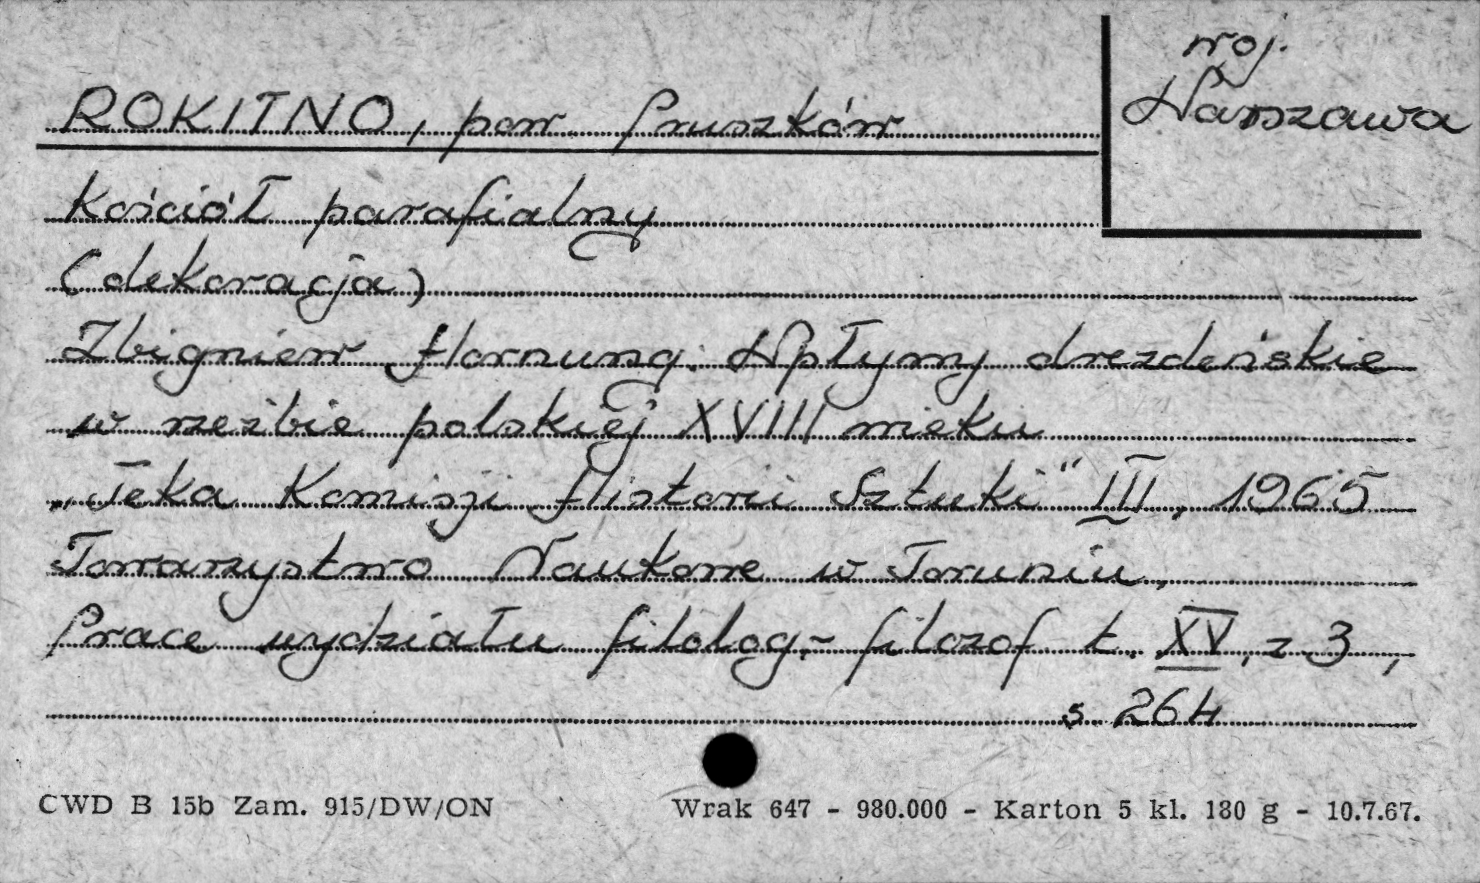 woj.
Warszawa
ROKITNO, pow. Pruszków
Kościół parafialny
(dekoracja)
Zbigniew Hornung. Wpływy drezdeńskie
w rzeźbie polskiej XVIII wieku
„Teka Komisji Historii Sztuki" III, 1965
Towarzystwo Naukowe w Toruniu,
Prace wydziału filolog.- filozof t. XV, z 3,
s. 264
CWD B 15b Zam. 915/DW/ON
Wrak 647 - 980.000 - Karton 5 kl. 180 g - 10.7.67.